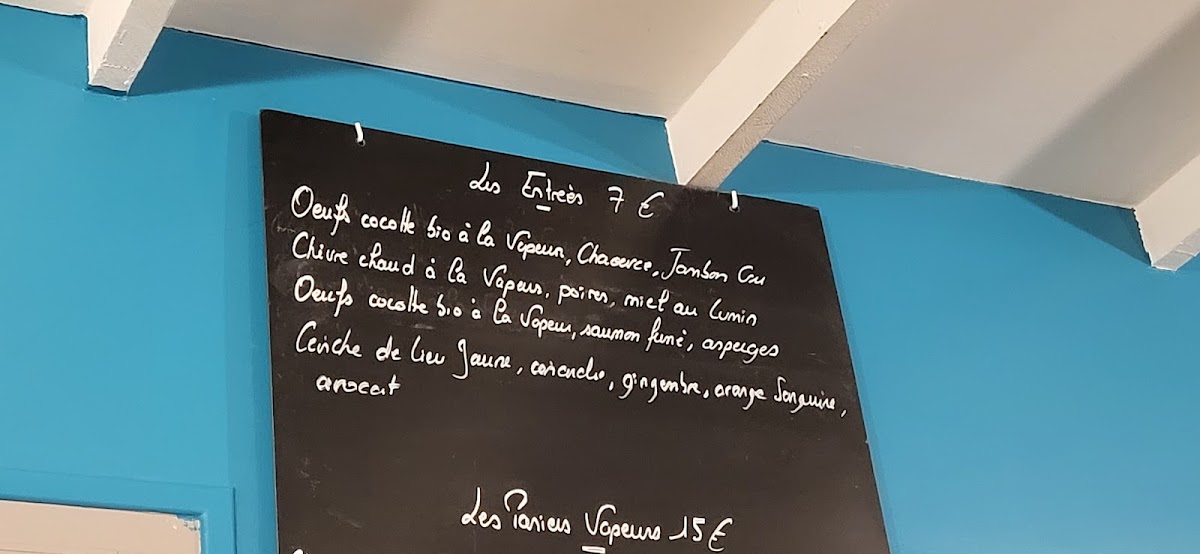 Les Entreès 7 €
Oeufs cocotte bio à la Vapeur, Chaource, Jambon Cru
Chèvre chaud à la Vapeur, poires, miel au Cumin
Oeufs cocotte bio à la Vapeur, saumon fumé, asperges
Ceviche de lieu Jaune, coriandre, gingembre, orange Sanguine,
avocat
Les Paniers Vapeurs 15 €